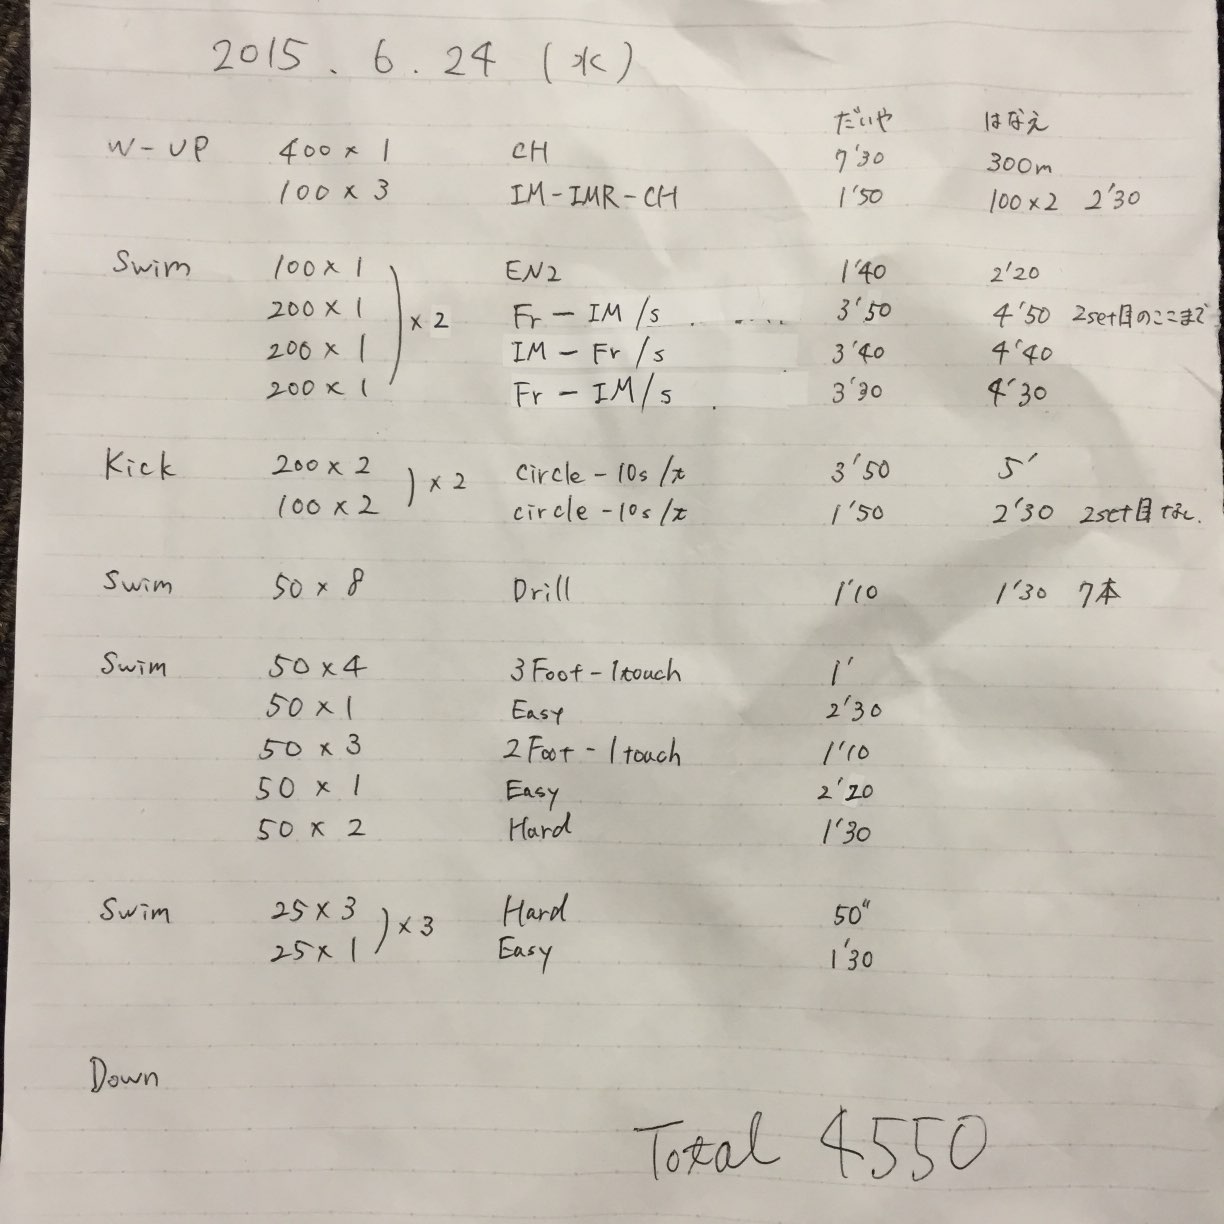 2015.6.24 (水)
だいや はなえ
W-UP 400×1 CH 7'30 300m
100×3 IM-IMR-CH 1'50 100×2 2'30
Swim 100×1 EN2 1'40 2'20
200×1 Fr-IM/s 3'50 4'50 2set目のここまで
×2
200×1 IM-Fr/s 3'40 4'40
200×1 Fr-IM/s 3'30 4'30
Kick 200×2 circle-10s/t 3'50 5'
×2
100×2 circle-10s/t 1'50 2'30 2set目なし.
Swim 50×8 Drill 1'10 1'30 7本
Swim 50×4 3Foot-1touch 1'
50×1 Easy 2'30
50×3 2Foot-1touch 1'10
50×1 Easy 2'20
50×2 Hard 1'30
Swim 25×3 Hard 50"
×3
25×1 Easy 1'30
Down
Total 4550